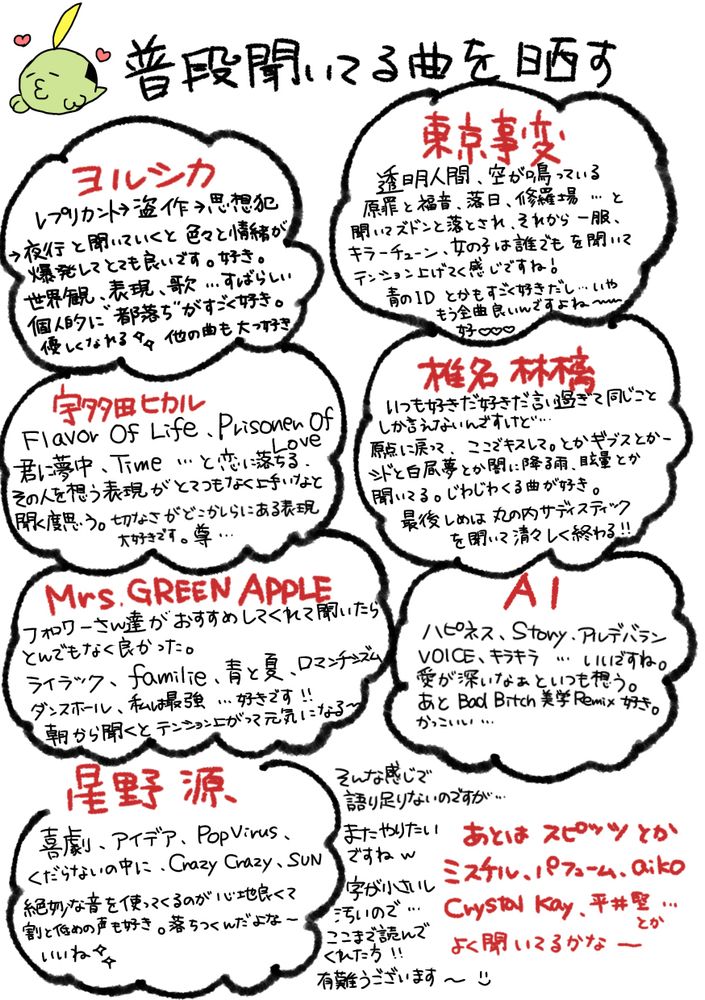 普段聞いてる曲を晒す
ヨルシカ
レプリカント→盗作→思想犯
→夜行と聞いていくと色々と情緒が
爆発してとても良いです。好き。
世界観、表現、歌…すばらしい
個人的に"都落ち"がすごく好き。
優しくなれる 他の曲も大っ好き
東京事変
透明人間、空が鳴っている
原罪と福音、落日、修羅場…と
聞いてズドンと落とされ、それから一服、
キラーチューン、女の子は誰でもを聞いて
テンション上げてく感じですね!
青のIDとかもすごく好きだし…いや
もう全曲良いんですよね〜〜
好♡♡♡
宇多田ヒカル
Flavor Of Life、Prisoner Of
Love
君に夢中、Time…と恋に落ちる、
その人を想う表現がとてつもなく上手いなと
聞く度思う。切なさがどこかしらにある表現
大好きです。尊…
椎名林檎
いつも好きだ好きだ言い過ぎて同じこと
しか言えないんですけど…
原点に戻って、ここでキスして。とかギブスとかー
シドと白昼夢とか閃に降る雨、眩暈とか
聞いてる。じわじわくる曲が好き。
最後しめは丸の内サディスティック
を聞いて清々しく終わる!!
Mrs.GREEN APPLE
フォロワーさん達がおすすめしてくれて聞いたら
とんでもなく良かった。
ライラック、familie、青と夏、ロマンチシズム
ダンスホール、私は最強…好きです!!
朝から聞くとテンション上がって元気になる〜
AI
ハピネス、Story、アルデバラン
VOICE、キラキラ…いいですね。
愛が深いなぁといつも想う。
あとBad Bitch美学Remix好き。
かっこいい…
星野源
喜劇、アイデア、Pop Virus、
くだらないの中に、Crazy Crazy、SUN
絶妙な音を使ってくるのが心地良くて
割と低めの声も好き。落ちつくんだよな〜
いいね
そんな感じで
語り足りないのですが…
またやりたい
ですねw
字が小さいし
汚いので…
ここまで読んで
くれた方!!
有難うございます〜
あとはスピッツとか
ミスチル、パフューム、aiko
Crystal Kay、平井堅…
とか
よく聞いてるかな〜